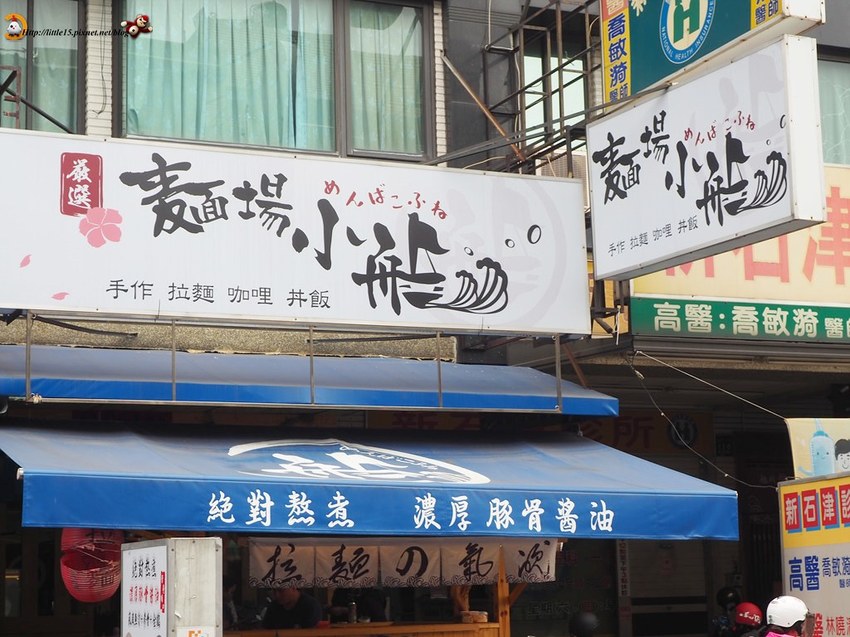 http://little15.pixnet.net/blog
嚴選
麵場小船
めんばこふね
手作 拉麵 咖哩 丼飯
麵場小船
めんばこふね
手作 拉麵 咖哩 丼飯
喬敏漪醫師
NATIONAL HEALTH INSURANCE
新石津
高醫:喬敏漪醫師
絕對熬煮 濃厚豚骨醬油
拉麵の氣
絕對熬煮
濃厚豚骨醬油
新石津診
高醫 喬敏漪
醫師